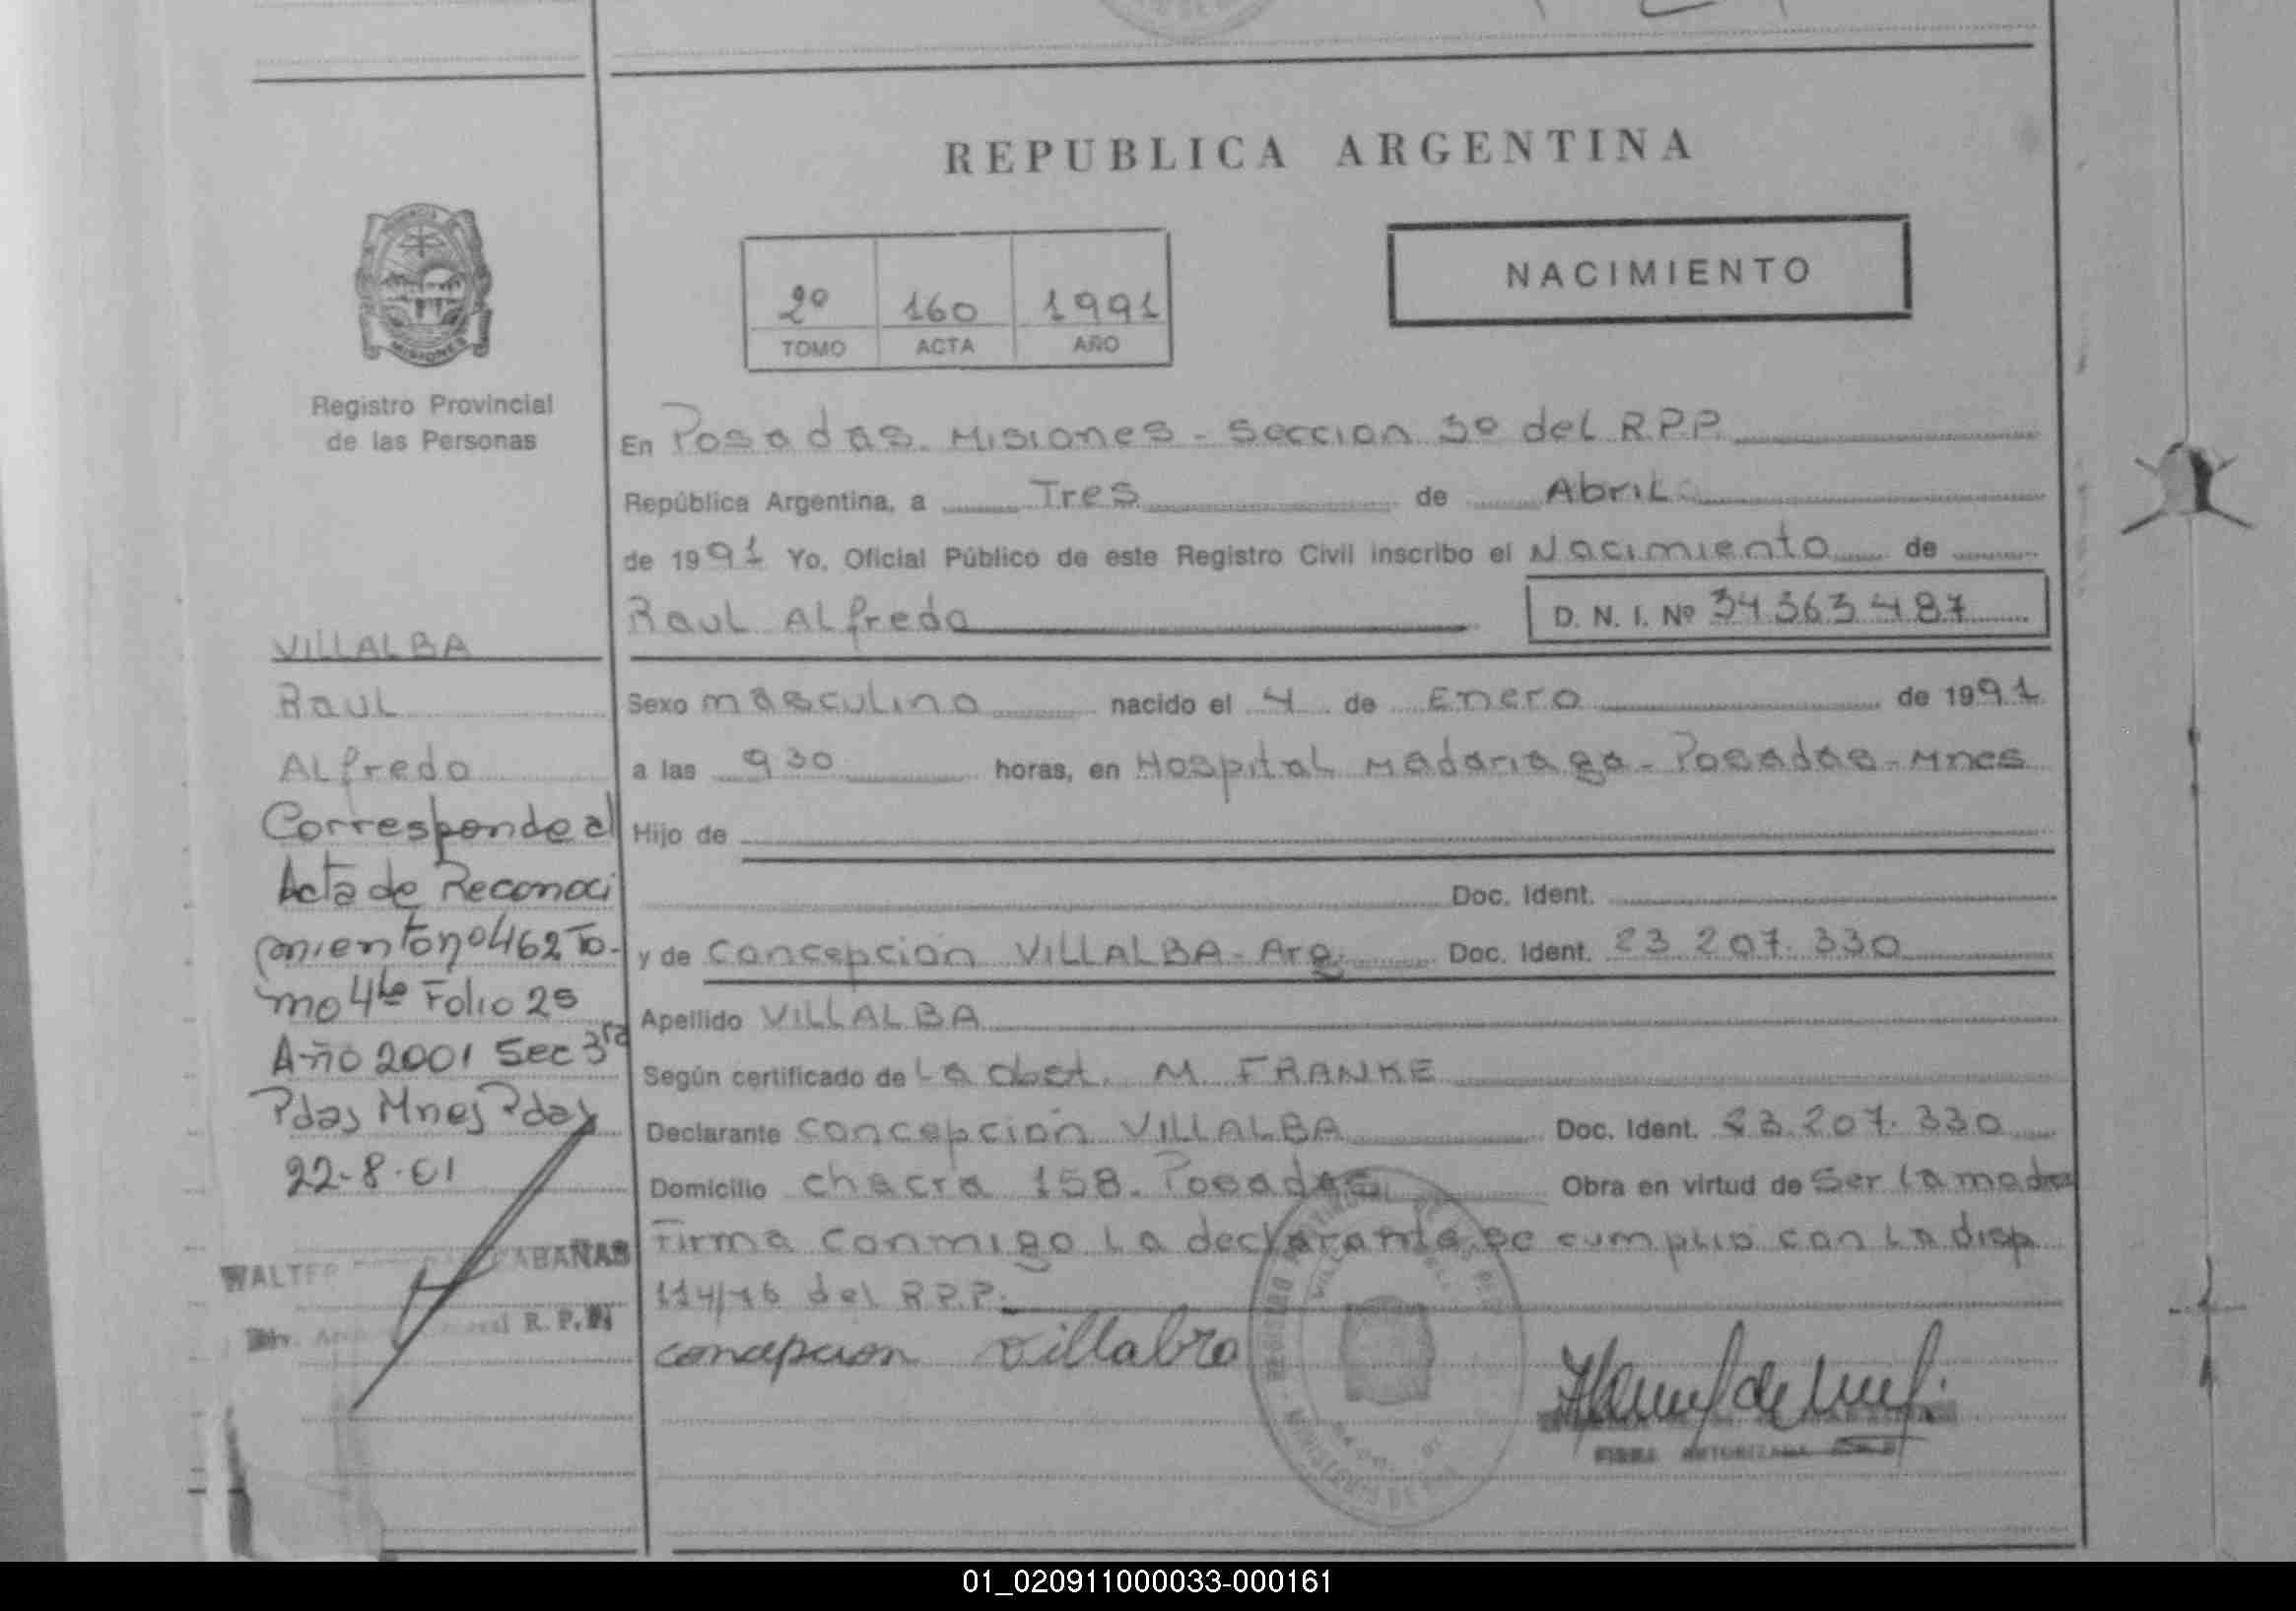 REPUBLICA ARGENTINA
NACIMIENTO
2º 160 1991
TOMO ACTA AÑO
MISIONES
Registro Provincial
de las Personas
En Posadas. Misiones - Seccion 3º del R.P.P.
República Argentina, a Tres de Abril
de 1991 Yo, Oficial Público de este Registro Civil inscribo el Nacimiento de
Raul Alfredo
D. N. I. Nº 34.363.487
Sexo masculino nacido el 4 de Enero de 1991
a las 930 horas, en Hospital Madariaga - Posadas - Mnes
Hijo de
Doc. Ident.
y de Concepcion VILLALBA - Arg. Doc. Ident. 23.207.330
Apellido VILLALBA
Según certificado de La obst. M. FRANKE
Declarante Concepcion VILLALBA Doc. Ident. 23.207.330
Domicilio chacra 158. Posadas Obra en virtud de Ser la madre
Firma conmigo la declarante se cumplio con la disp
114/76 del R.P.P.
concepcion Villabra
FIRMA AUTORIZADA
VILLALBA
Raul
Alfredo
Corresponde al
Acta de Reconoci
miento nº 462 To-
mo 4to Folio 25
Año 2001 Sec 3ra
Pdas Mnes Pdas
22-8-01
WALTER CABAÑAS
R. P. P.
01_020911000033-000161